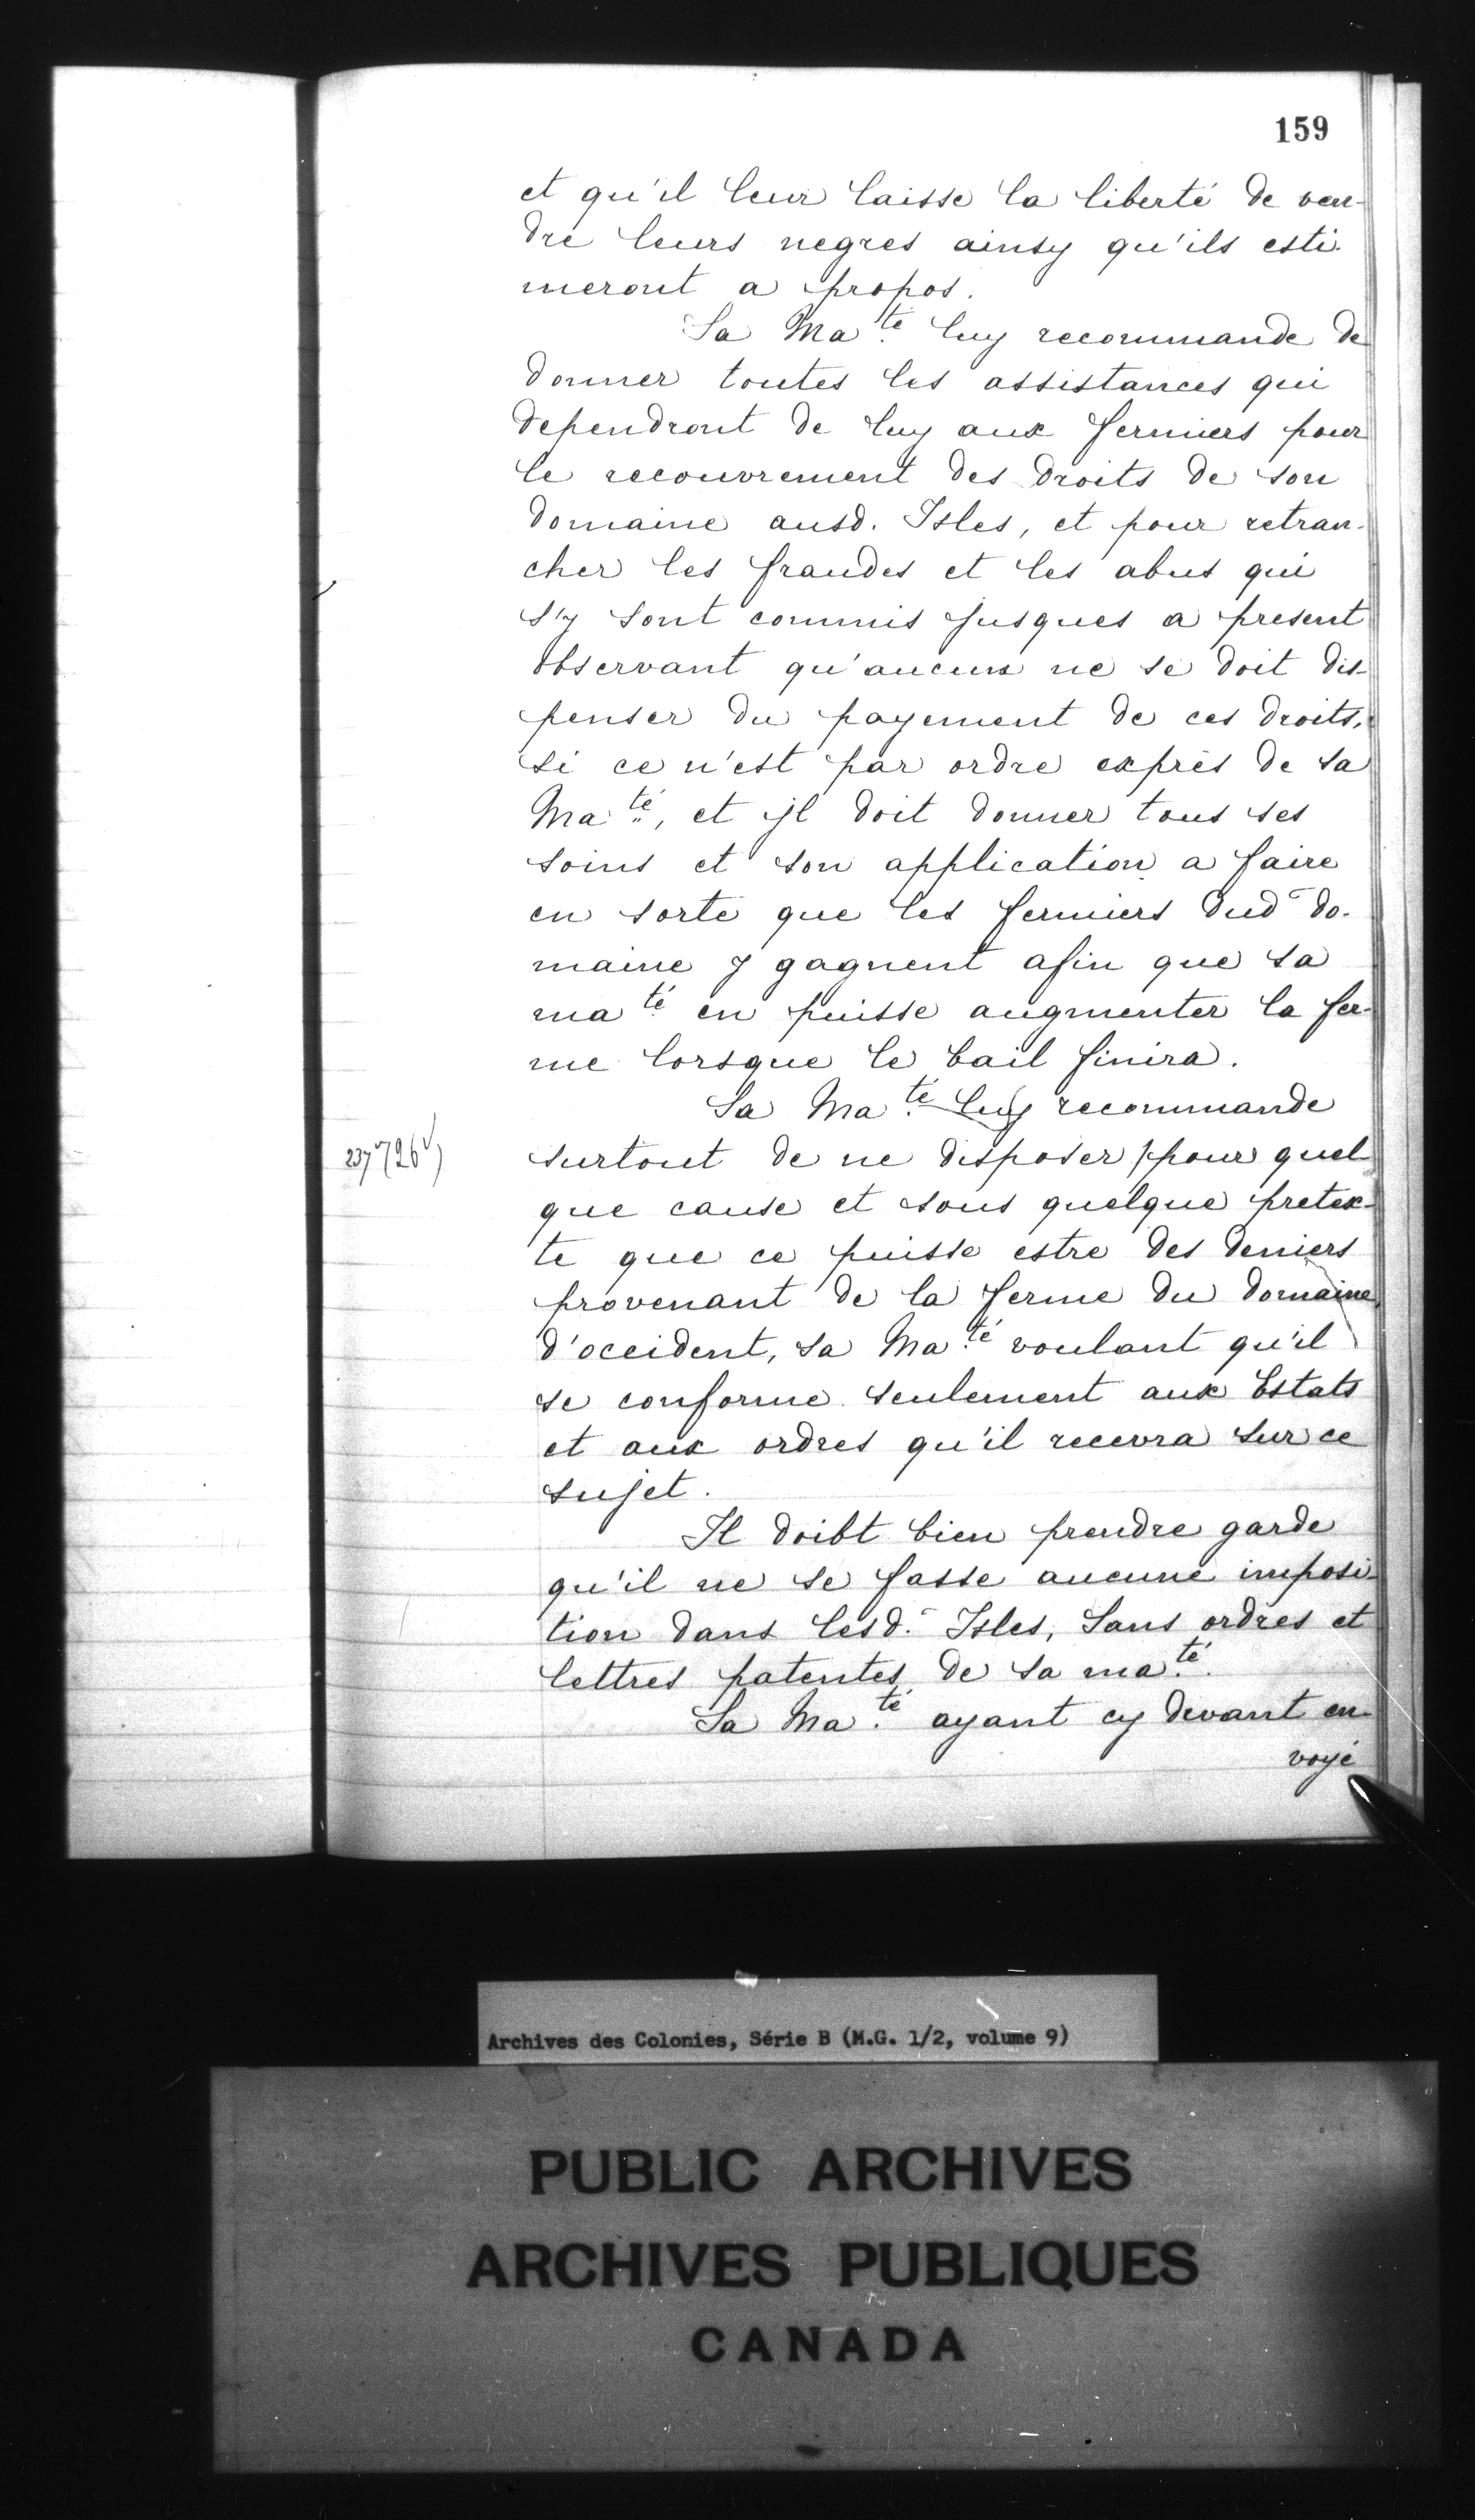 159
et qu'il leur laisse la liberté de ven-
dre leurs negres ainsy qu'ils esti-
meront a propos.
Sa Ma.té luy recommande de
donner toutes les assistances qui
dependront de luy aux fermiers pour
le recouvrement des droits de son
domaine ausd. Isles, et pour retran-
cher les fraudes et les abus qui
s'y sont commis jusques a present
observant qu'aucun ne se doit dis-
penser du payement de ces droits,
si ce n'est par ordre exprès de sa
Ma.té, et jl doit donner tous ses
soins et son application a faire
en sorte que les fermiers dud. do-
maine y gagnent afin que sa
ma.té en puisse augmenter la fer-
me lorsque le bail finira.
Sa Ma.té luy recommande
237v (26v)
surtout de ne disposer / pour quel-
que cause et sous quelque pretex-
te que ce puisse estre des deniers
provenant de la ferme du domaine
d'occident, sa Ma.té voulant qu'il
se conforme seulement aux Estats
et aux ordres qu'il recevra sur ce
sujet.
Il doibt bien prendre garde
qu'il ne se fasse aucune imposi-
tion dans lesd. Isles, sans ordres et
lettres patentes de sa ma.té.
Sa Ma.té ayant cy devant en-
voyé
Archives des Colonies, Série B (M.G. 1/2, volume 9)
PUBLIC ARCHIVES
ARCHIVES PUBLIQUES
CANADA